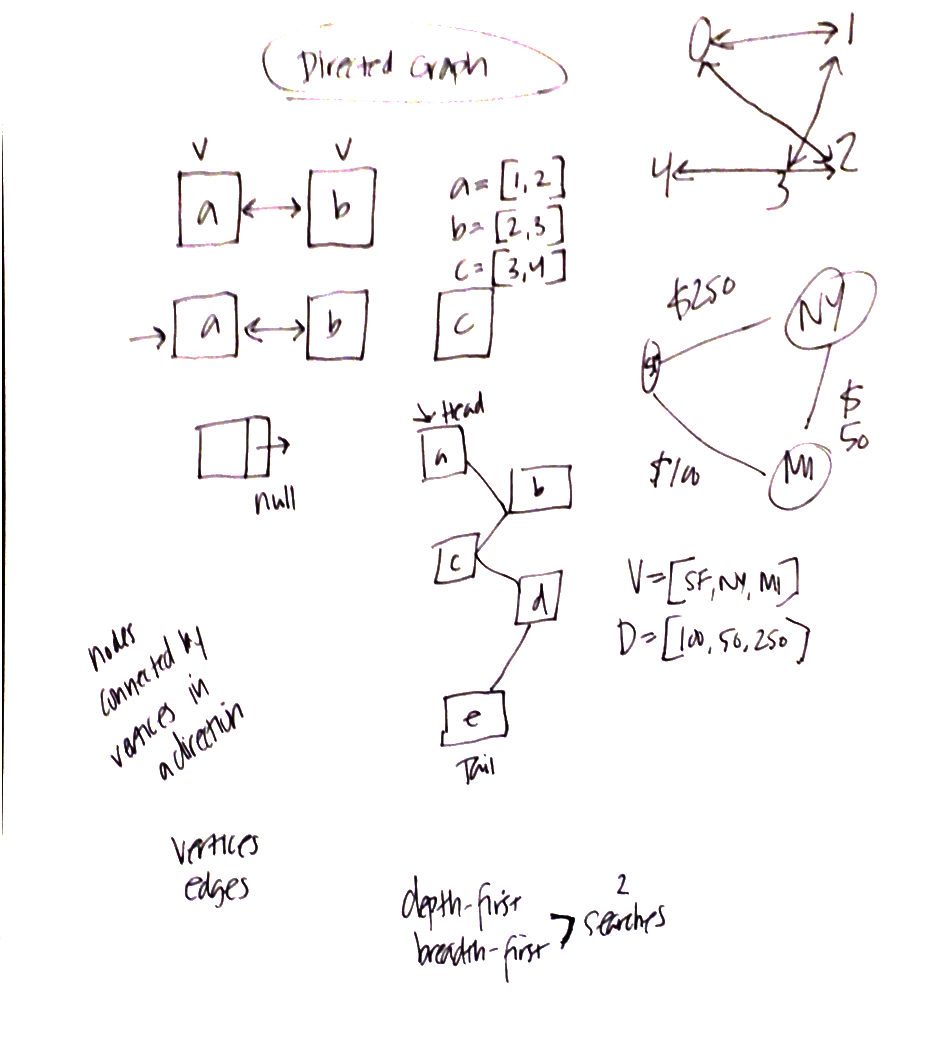 Directed Graph
0
1
2
3
4
V
V
a
b
a = [1,2]
b = [2,3]
c = [3,4]
a
b
c
$250
NY
SF
$
50
$100
MI
null
Head
a
b
c
d
e
Tail
V=[SF, NY, MI]
D=[100, 50, 250]
nodes
connected by
vertices in
a direction
vertices
edges
depth-first
breadth-first
2
searches